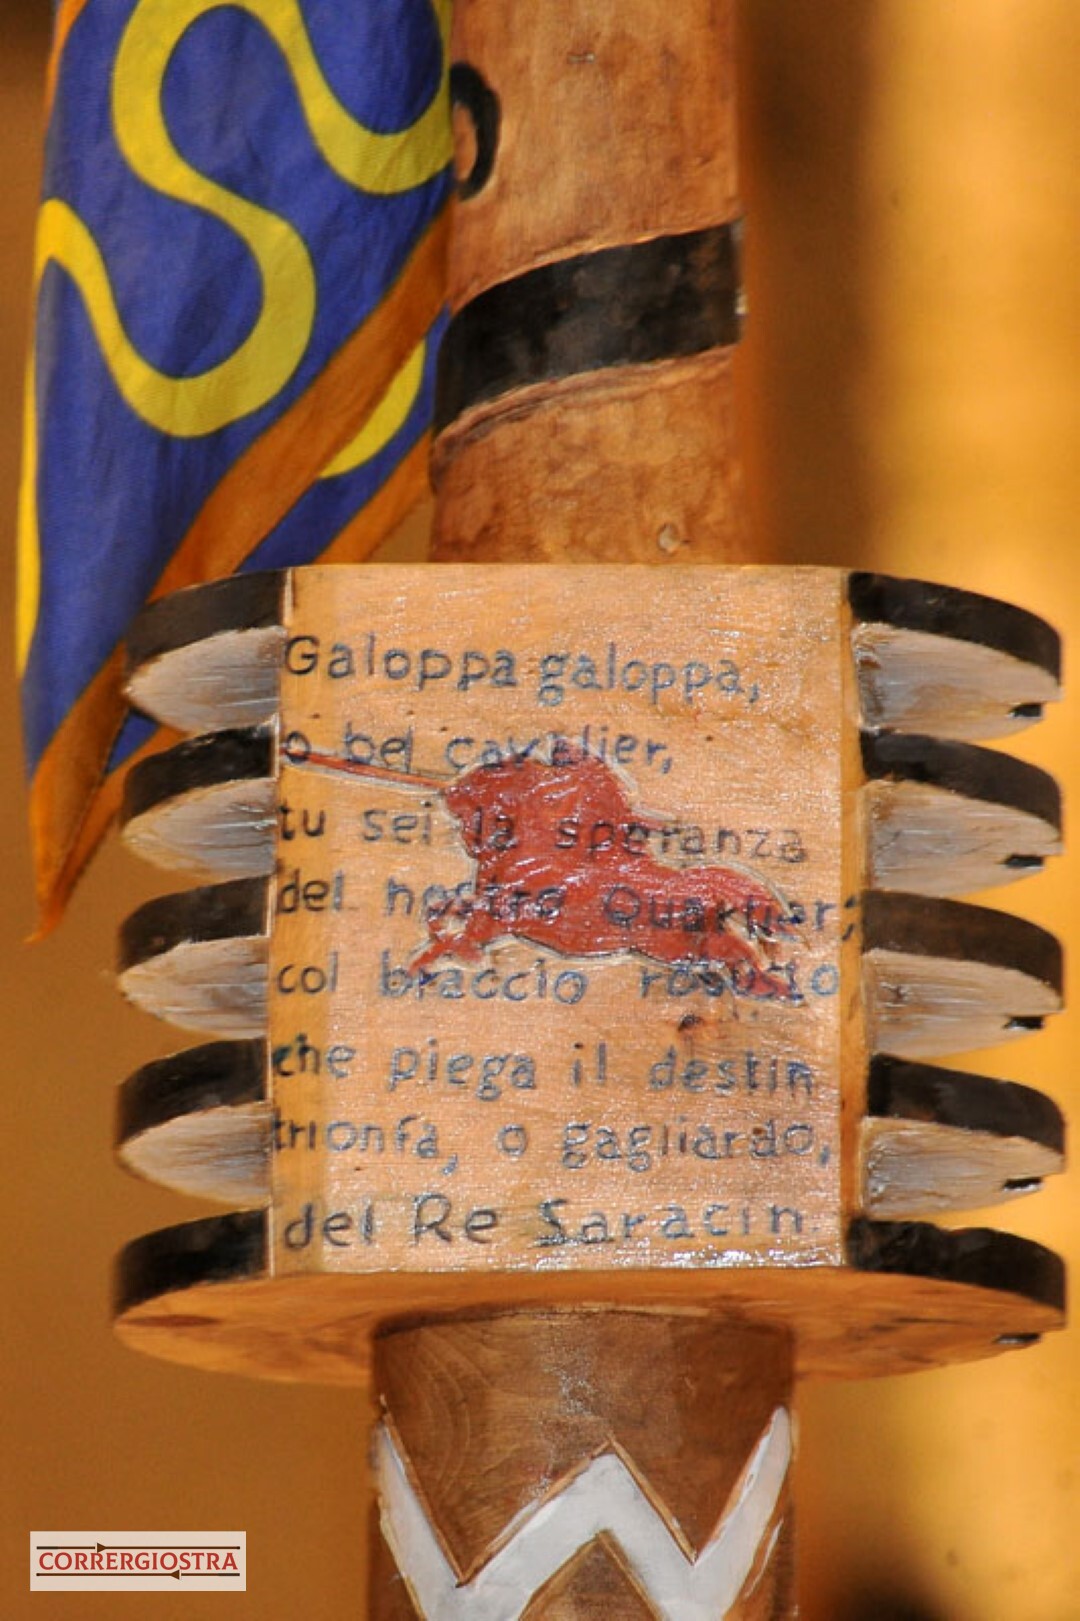 Galoppa galoppa,
o bel cavalier,
tu sei la speranza
del nostro Quartier;
col braccio robusto
che piega il destin
trionfa, o gagliardo,
del Re Saracin.
CORRERGIOSTRA